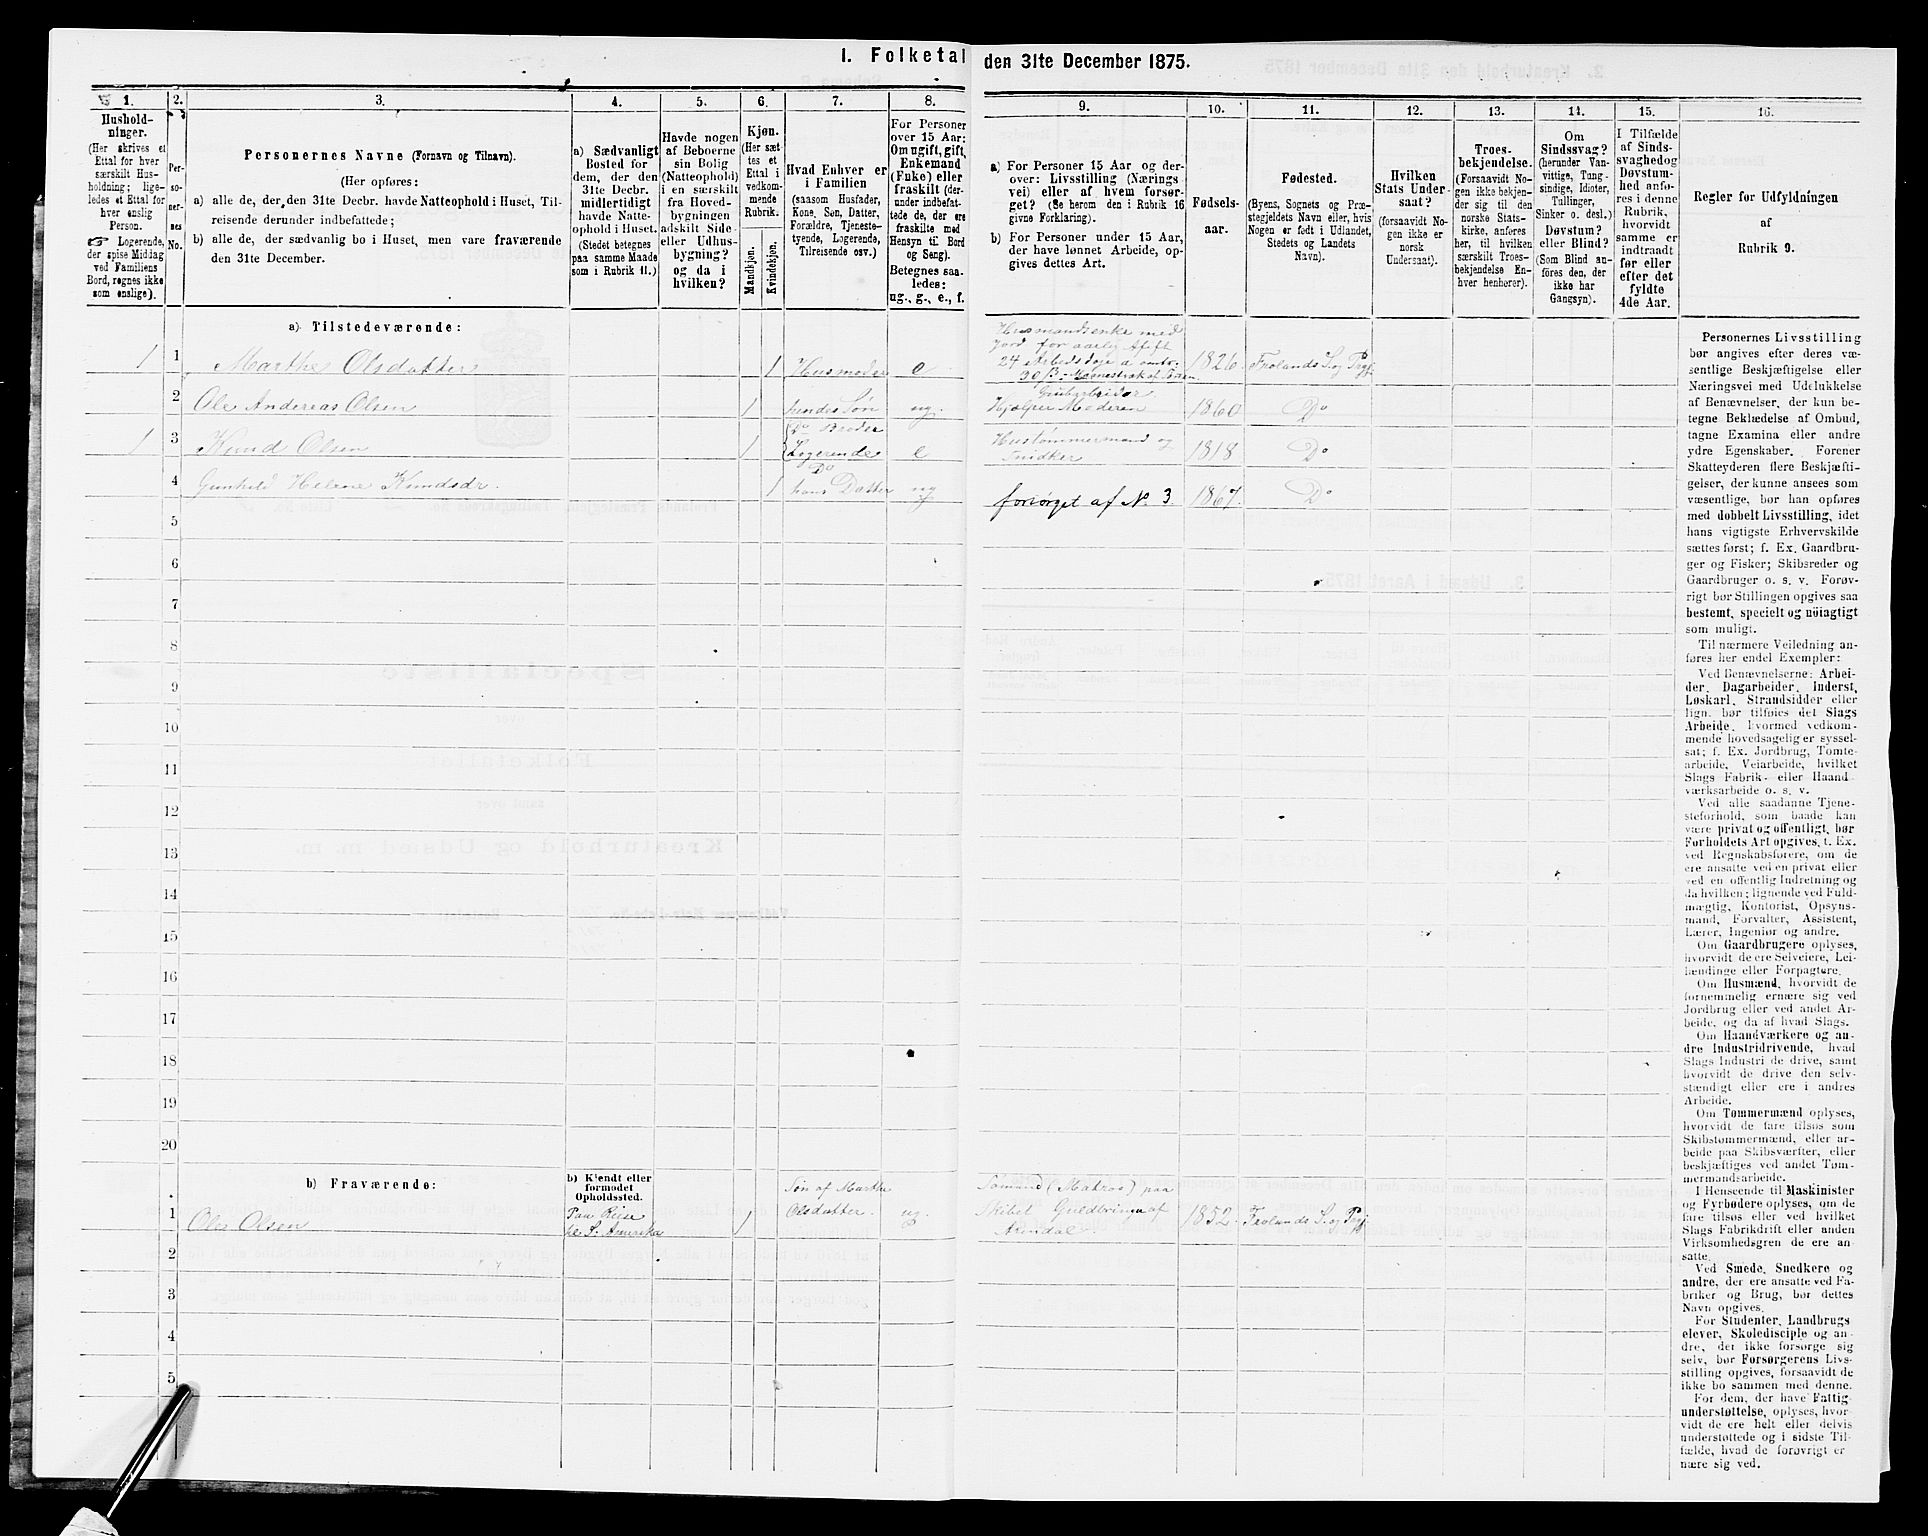 I. Folketal den 31te December 1875.
1. 2. 3. 4. 5. 6. 7. 8. 9. 10. 11. 12. 13. 14. 15. 16.
Hushold-
ninger.
(Her skrives et
Ettal for hver
særskilt Hus-
holdning; lige-
ledes et Ettal for
hver enslig
Person.
☞ Logerende,
der spise Middag
ved Familiens
Bord, regnes ikke
som enslige).
Per-
so-
ner-
nes
No.
Personernes Navne (Fornavn og Tilnavn).
(Her opføres:
a) alle de, der den 31te Decbr. havde Natteophold i Huset, Til-
reisende derunder indbefattede;
b) alle de, der sædvanlig bo i Huset, men vare fraværende
den 31te December.
a) Sædvanligt
Bosted for
dem, der den
31te Decbr.
midlertidigt
havde Natte-
ophold i Huset.
(Stedet betegnes
paa samme Maade
som i Rubrik 11.)
Havde nogen
af Beboerne
sin Bolig
(Natteophold)
i en særskilt
fra Hoved-
bygningen
adskilt Side-
eller Udhus-
bygning?
og da i
hvilken?
Kjøn.
(Her sæt-
tes et
Ettal i
vedkom-
mende
Rubrik.
Mandkjøn.
Kvindekjøn.
Hvad Enhver er
i Familien
(saasom Husfader,
Kone, Søn, Datter,
Forældre, Tjeneste-
tyende, Logerende,
Tilreisende osv.)
For Personer
over 15 Aar:
Om ugift, gift,
Enkemand
(Fuke) eller
fraskilt (der-
under indbefat-
tede de, der ere
fraskilte med
Hensyn til Bord
og Seng).
Betegnes saa-
ledes:
ug., g., e., f.
a) For Personer 15 Aar og der-
over: Livsstilling (Nærings-
vei) eller af hvem forsør-
get? (Se herom den i Rubrik 16
givne Forklaring).
b) For Personer under 15 Aar,
der have lønnet Arbeide, op-
gives dettes Art.
Fødsels-
aar.
Fødested.
(Byens, Sognets og Præ-
stegjeldets Navn eller, hvis
Nogen er født i Udlandet,
Stedets og Landets
Navn).
Hvilken
Stats Under-
saat?
(forsaavidt No-
gen ikke er
norsk
Undersaat).
Troes-
bekjendelse.
(Forsaavidt No-
gen ikke bekjen-
der sig til den
norske Stats-
kirke, anføres
her, til hvilken
særskilt Troes-
bekjendelse En-
hver henhører).
Om
Sindssvag?
(herunder Van-
vittige, Tung-
sindige, Idioter,
Tullinger,
Sinker o. desl.)
Døvstum?
eller Blind?
(Som Blind an-
føres den, der
ikke har
Gangsyn).
I Tilfælde
af Sinds-
svaghed og
Døvstum-
hed anfø-
res i denne
Rubrik,
hvorvidt
samme er
indtraadt
før eller
efter det
fyldte
4de Aar.
Regler før Udfyldningen
af
Rubrik 9.
a) Tilstedeværende:
Husmandsenke med
Jord for aarlig Afift
1 1 Marthe Olsdatter 1 Husmoder e 24 Arbeidsdage a omtr. 1826 Frolands S. og Prgj.
30 β
2 Ole Andreas Olsen 1 hendes Søn ug. Hjælper Moderen 1860 Do
Do Broder
1 3 Knud Olsen 1 Logerende e Hustømmermand og Snidker 1818 Do
Do
4 Gunhild Helene Knudsdr. 1 hans Datter ug forsørget af No. 3 1867. Do
5
6
7
8
9
10
11
12
13
14
15
16
17
18
19
20
b) Fraværende:
b) Kjendt eller
formodet
Opholdssted.
1 Ole Olsen Paa Reise til S. Amerika 1 Søn af Marthe Olsdatter. ug. Sømand (Matros) paa Skibet Guldbringa af Arendal. 1852. Frolands S. og Prgj.
2
3
4
5
Personernes Livsstilling
bør angives efter deres væ-
sentlige Beskjæftigelse eller
Næringsvei med Udelukkelse
af Benævnelser, der kun be-
tegne Beklædelse af Ombud,
tagne Examina eller andre
ydre Egenskaber. Forener
Skatteyderen flere Beskjæfti-
gelser, der kunne ansees som
væsentlige, bør han opføres
med dobbelt Livsstilling, idet
hans vigtigste Erhvervskilde
sættes først; f. Ex. Gaardbru-
ger og Fisker; Skibsreder og
Gaardbruger o. s. v. Forøv-
rigt bør Stillingen opgives saa
bestemt, specielt og nöiagtigt
som muligt.
Til nærmere Veiledning an-
føres her endel Exempler:
Ved Benævnelserne: Arbei-
der, Dagarbeider, Inderst,
Løskarl, Strandsidder eller
lign. bør tilføies det Slags
Arbeide, hvormed vedkom-
mende hovedsagelig er syssel-
sat; f. Ex. Jordbrug, Tomte-
arbeide, Veiarbeide, hvilket
Slags Fabrik- eller Haand-
værksarbeide o. s. v.
Ved alle saadanne Tjene-
steforhold, som baade kan
være privat og offentligt, bør
Forholdets Art opgives, t. Ex.
ved Regnskabsførere, om de
ere ansatte ved en privat eller
ved en offentlig Indretning og
da hvilken; lignende ved Fuld-
mægtig, Kontorist, Opsyns-
mand, Forvalter, Assistent,
Lærer, Ingeniør og andre.
Om Gaardbrugere oplyses,
hvorvidt de ere Selveiere, Lei-
lændinge eller Forpagtere.
Om Husmænd, hvorvidt de
fornemmelig ernære sig ved
Jordbrug eller ved andet Ar-
beide, og da af hvad Slags.
Om Haandværkere og an-
dre Industridrivende, hvad
Slags Industri de drive, samt
hvorvidt de drive den selv-
stændigt eller ere i andres
Arbeide.
Om Tømmermænd oplyses,
hvorvidt de fare tilsøs som
Skibstømmermænd, eller ar-
beide paa Skibsværfter, eller
beskjæftiges ved andet Tøm-
mermandsarbeide.
I Henseende til Maskinister
og Fyrbødere oplyses, om de
fare tilsøs eller ved hvilket
Slags Fabrikdrift eller anden
Virksomhedsgren de ere an-
satte.
Ved Smede, Snedkere og
andre, der ere ansatte ved Fa-
briker og Brug, bør dettes
Navn opgives.
For Studenter, Landbrugs
elever, Skoledisciple og an-
dre, der ikke forsørge sig
selv, bør Forsørgerens Livs-
stilling opgives, forsaavidt de
ikke bo sammen med denne.
For dem, der have Fattig-
understøttelse, oplyses, hvor-
vidt de ere helt eller delvis
understøttede og i sidste Til-
fælde, hvad de forøvrigt er
nære sig ved.